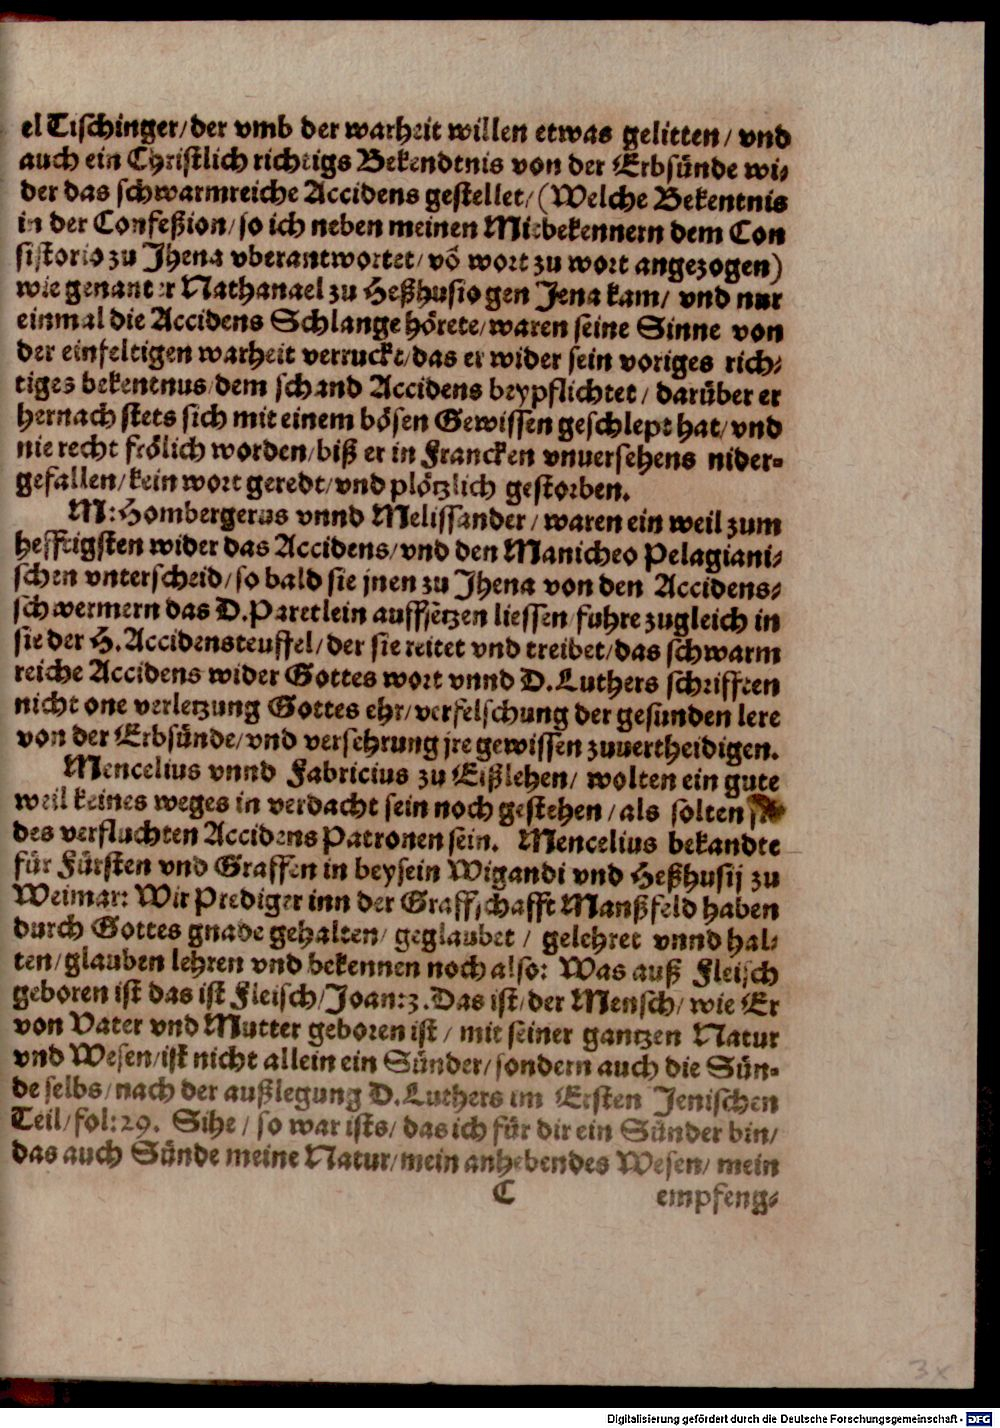 el Tischinger/der vmb der warheit willen etwas gelitten/ vnd
auch ein Christlich richtigs Bekendtnis von der Erbsünde wi⸗
der das schwarmreiche Accidens gestellet/ (Welche Bekentnis
in der Confeßion/so ich neben meinen Mitbekennern dem Con
sistorio zu Jhena vberantwortet/ võ wort zu wort angezogen)
wie genanter Nathanael zu Heßhusio gen Jena kam/ vnd nur
einmal die Accidens Schlange hörete/waren seine Sinne von
der einfeltigen warheit verruckt/das er wider sein voriges rich⸗
tiges bekentnus/dem schand Accidens beypflichtet/ darüber er
hernach stets sich mit einem bösen Gewissen geschlept hat/vnd
nie recht frölich worden/biß er in Francken vnuersehens nider⸗
gefallen/kein wort geredt/vnd plötzlich gestorben.
M: Hombergerus vnnd Melissander/waren ein weil zum
hefftigsten wider das Accidens/vnd den Manicheo Pelagiani⸗
schen vnterscheid/so bald sie jnen zu Jhena von den Accidens⸗
schwermern das D. Paretlein auffsetzen liessen/fuhre zugleich in
sie der H. Accidensteuffel/der sie reitet vnd treibet/das schwarm
reiche Accidens wider Gottes wort vnnd D. Luthers schrifften
nicht one verletzung Gottes ehr/verfelschung der gesunden lere
von der Erbsünde/vnd versehrung jre gewissen zuuertheidigen.
Mencelius vnnd Fabricius zu Eißlehen/ wolten ein gute
weil keines weges in verdacht sein noch gestehen/als solten
des verfluchten Accidens Patronen sein. Mencelius bekandte
für Fürsten vnd Graffen in beysein Wigandi vnd Heßhusij zu
Weimar: Wir Prediger inn der Graffschafft Manßfeld haben
durch Gottes gnade gehalten/ geglaubet / gelehret vnnd hal⸗
ten/glauben lehren vnd bekennen noch also: Was auß Fleisch
geboren ist das ist Fleisch/Joan:3. Das ist/der Mensch/ wie Er
von Vater vnd Mutter geboren ist / mit seiner gantzen Natur
vnd Wesen/ist nicht allein ein Sünder/sondern auch die Sün⸗
de selbs/nach der außlegung D. Luthers im Ersten Jenischen
Teil/fol:29. Sihe / so war ists/ das ich für dir ein Sünder bin/
das auch Sünde meine Natur/mein anhebendes Wesen/ mein
C empfeng⸗
3x
Digitalisierung gefördert durch die Deutsche Forschungsgemeinschaft - DFG